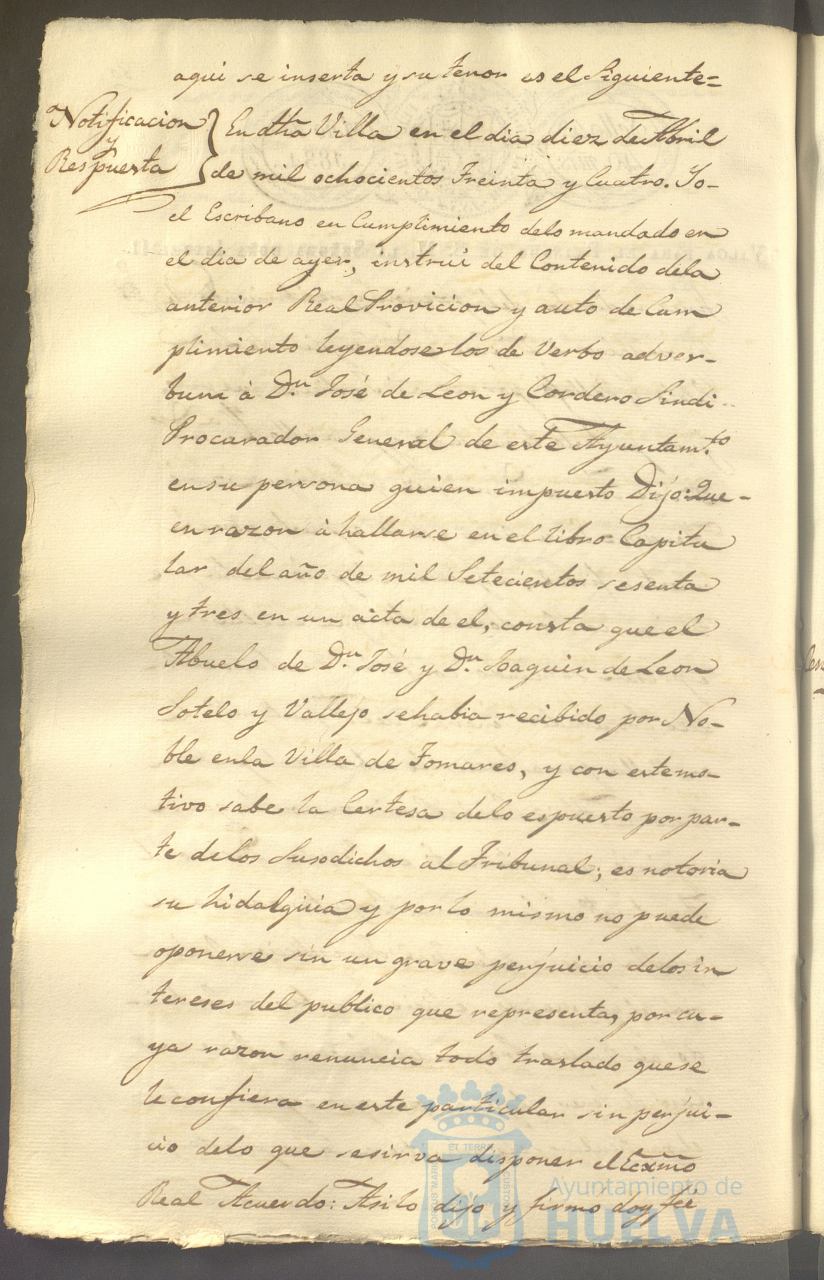 aqui se inserta y su tenor es el Siguiente=
Notificacion
y
Respuesta
En dtha Villa en el dia diez de Abril
de mil ochocientos Treinta y Cuatro. Yo-
el Escribano en Cumplimiento delo mandado en
el dia de ayer, instrui del Contenido dela
anterior Real Provicion y auto de Cum
plimiento leyendoselos de Verbo adver-
bum à Dn. José de Leon y Cordero Sindi-
Procurador General de este Ayuntamto.
en su persona quien impuesto Dijo: Que-
en razon à hallarse en el libro Capitu
lar del año de mil Setecientos sesenta
y tres en un acta de el, consta que el
Abuelo de Dn. José y Dn. Joaquin de Leon
Sotelo y Vallejo sehabia recibido por No-
ble enla Villa de Tomares, y con estemo-
tivo sabe la Certesa delo espuesto por par-
te delos Susodichos al Tribunal; es notoria
su hidalguia y por lo mismo no puede
oponerse sin un grave perjuicio delos in
tereses del publico que representa, por cu-
ya razon renuncia todo traslado quese
le confiera en este particular sin perjui-
cio delo que sesirva disponer el Exmo
Real Acuerdo: Asi lo dijo y firmo doy feé
ET TERRA
PORTUS MARIS
CUSTODIA
Ayuntamiento de
HUELVA